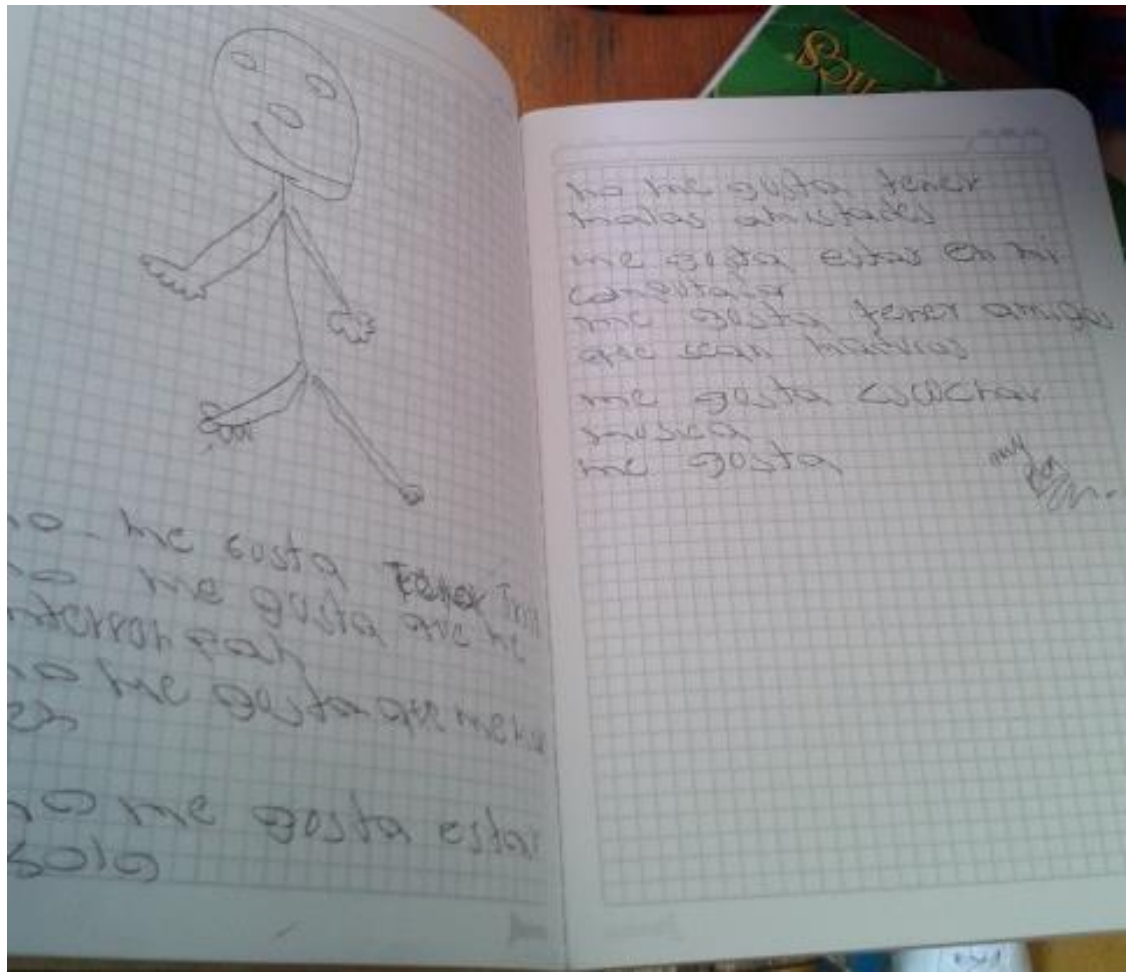 no me gusta Tener
no me gusta que me
interronpan
no me gusta que me
no me gusta estar
solo
no me gusta tener
malas amistades
me gusta estar en mi
me gusta tener amigos
que sean
me gusta escuchar
musica
me gusta
muy